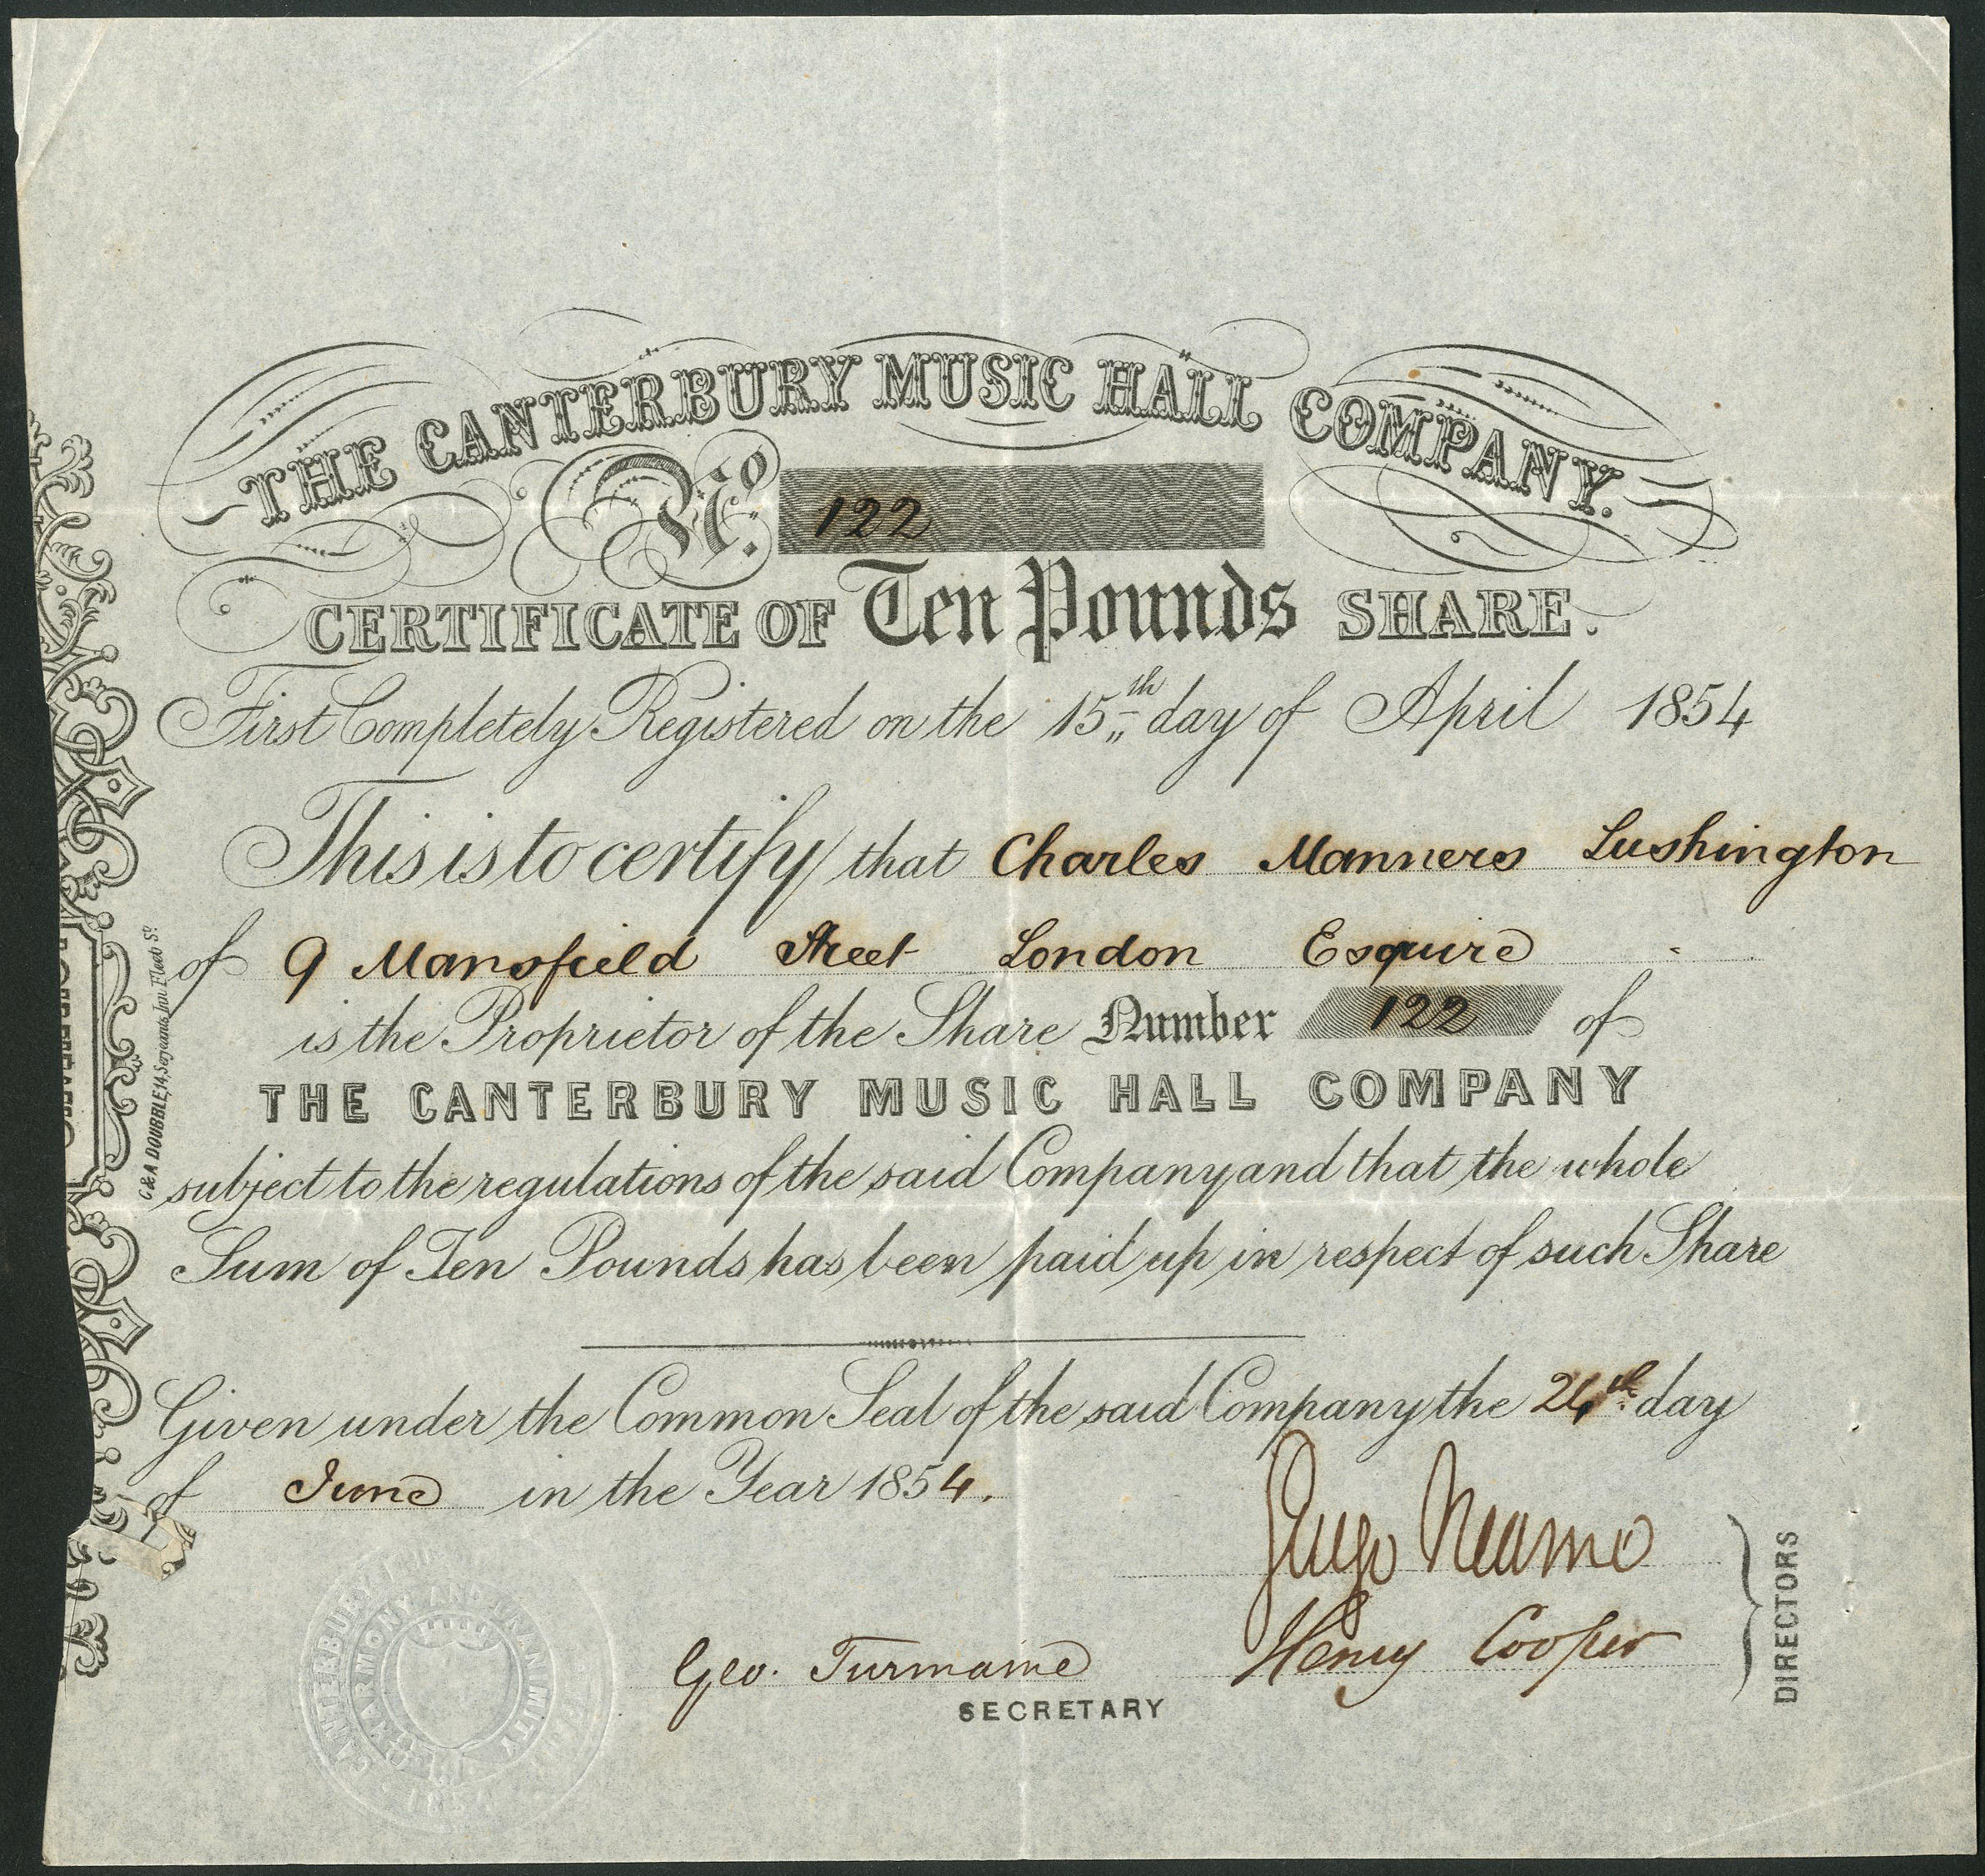 THE CANTERBURY MUSIC HALL COMPANY.
No. 122
CERTIFICATE OF Ten Pounds SHARE.
First Completely Registered on the 15th day of April 1854
This is to certify that Charles Manners Lushington
of 9 Mansfield Street London Esquire
is the Proprietor of the Share Number 122 of
THE CANTERBURY MUSIC HALL COMPANY
subject to the regulations of the said Company and that the whole
Sum of Ten Pounds has been paid up in respect of such Share
Given under the Common Seal of the said Company the 24th day
of June in the Year 1854.
Henry Cooper
DIRECTORS
Geo. Furmaine
SECRETARY
C & A DOUBLE, 14, Serjeants Inn Fleet St.
CANTERBURY
HARMONY AND UNANIMITY